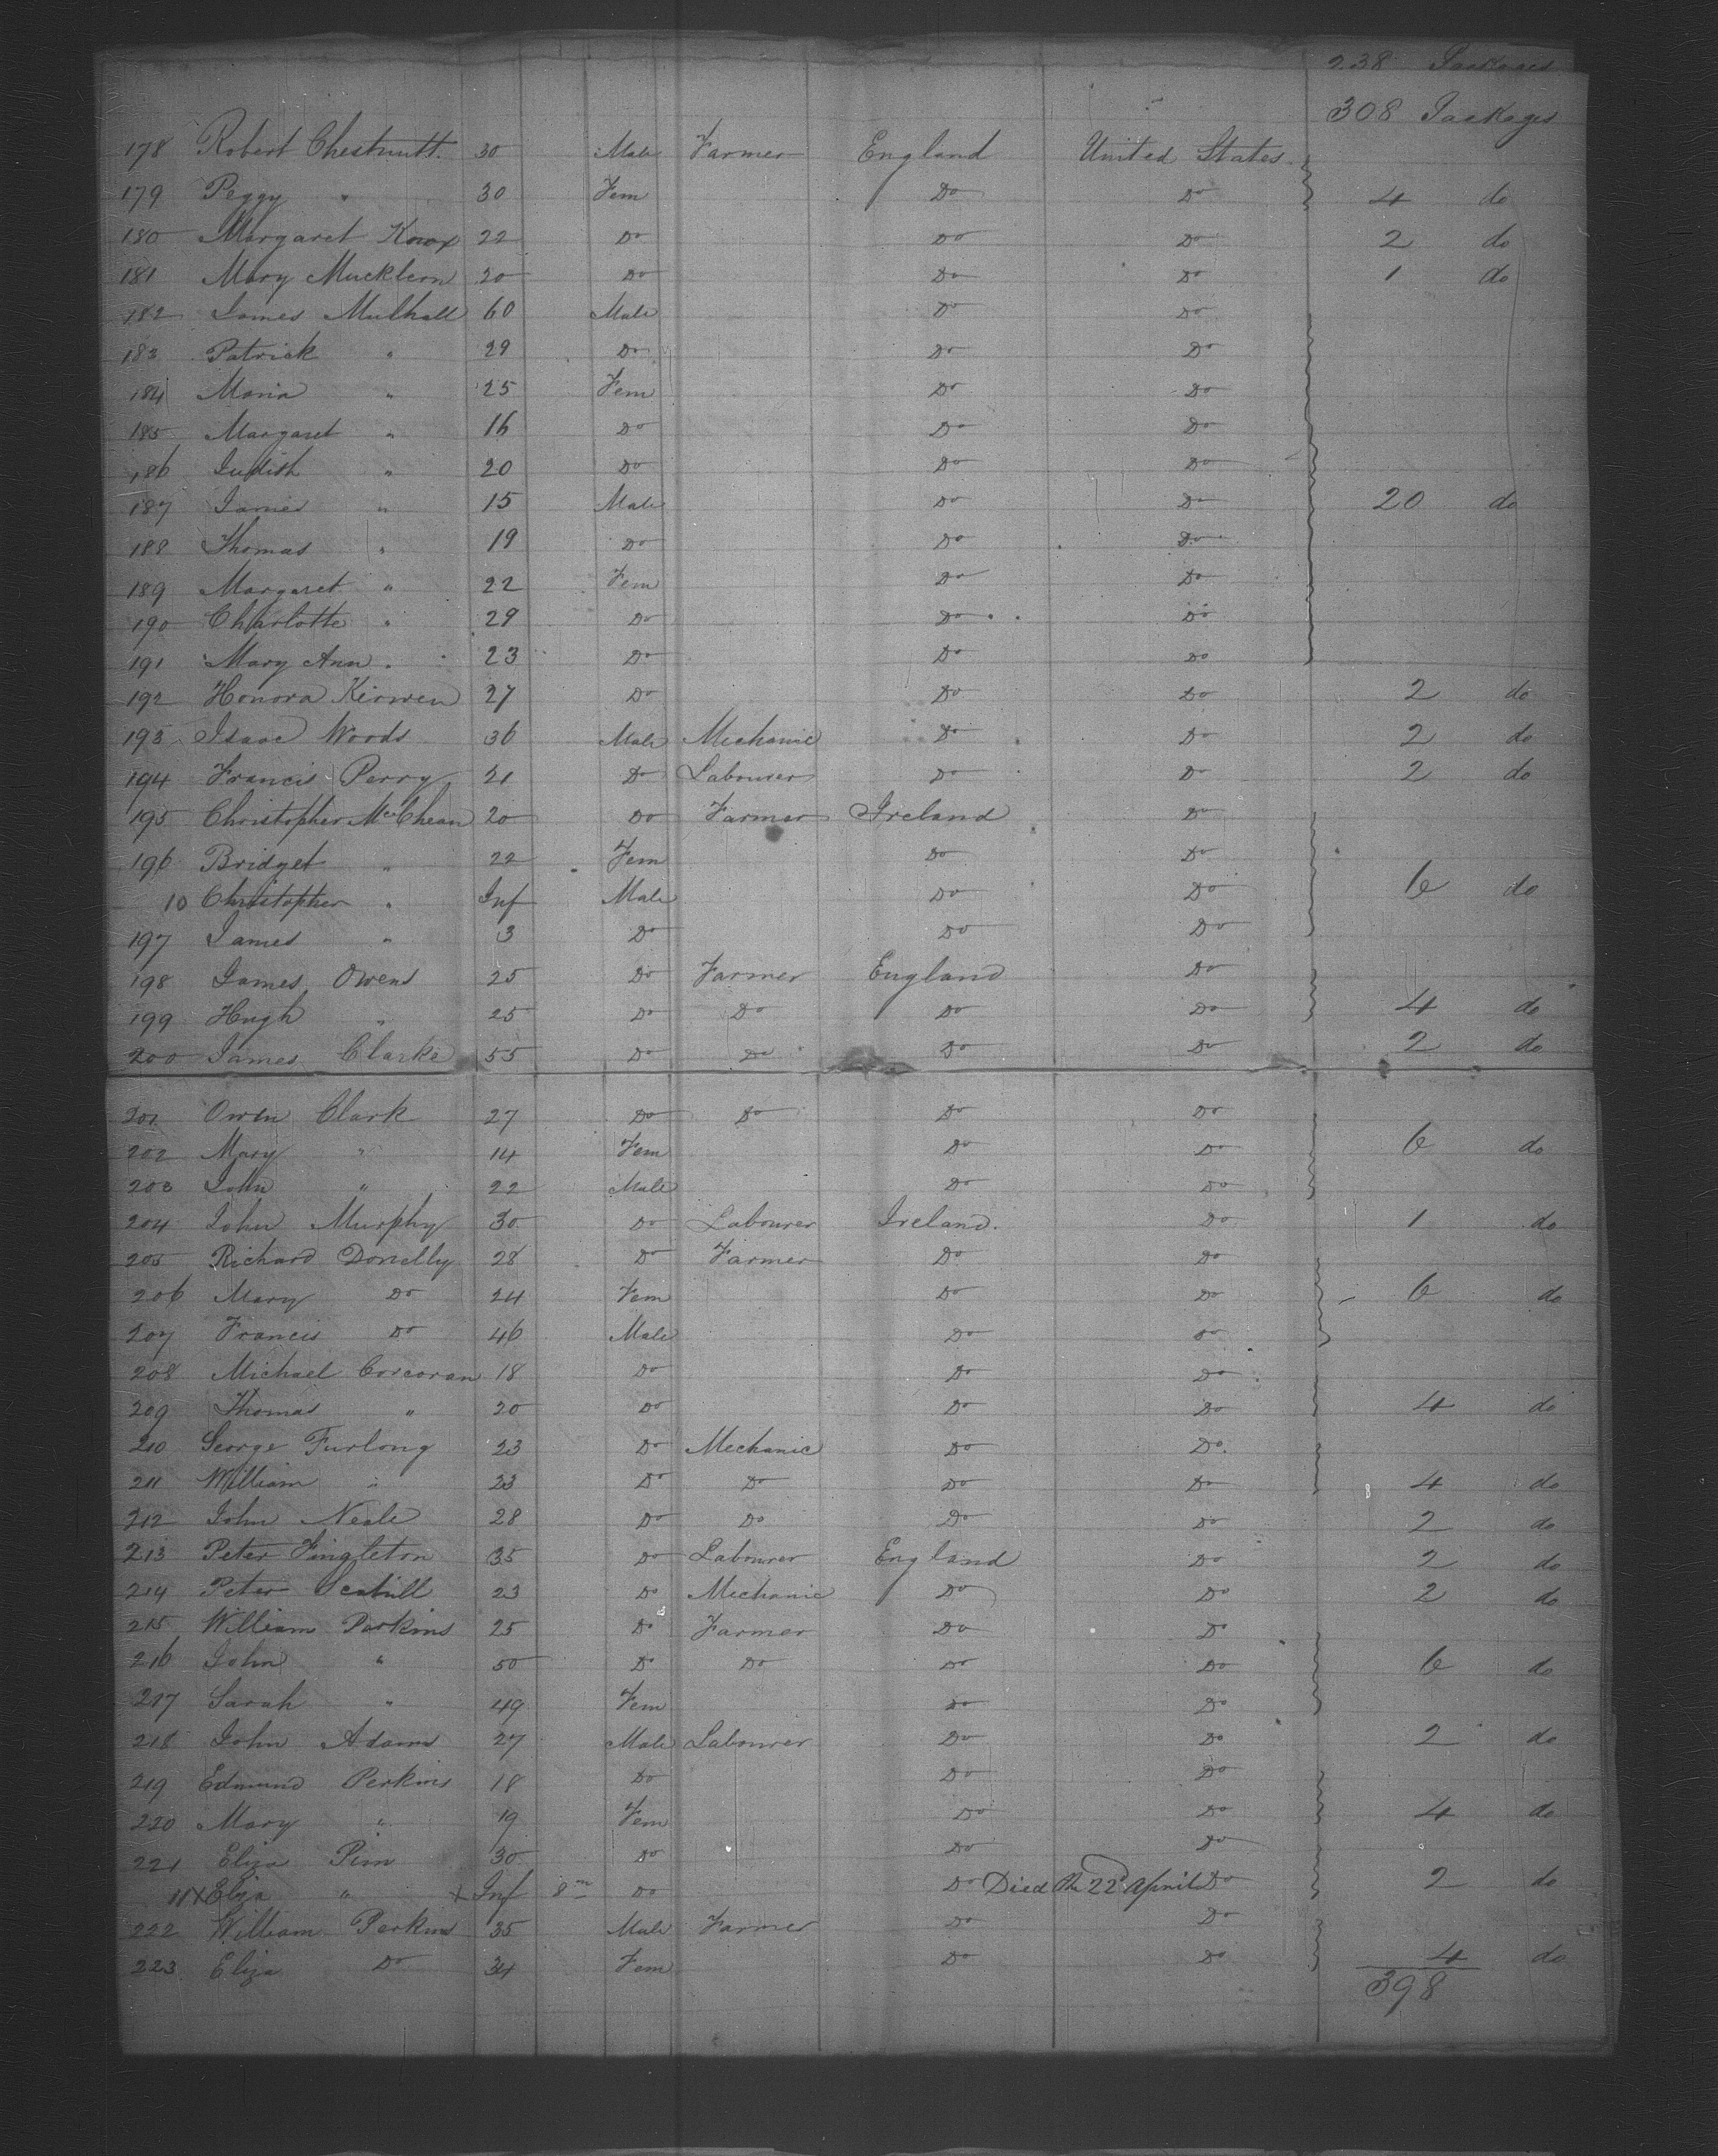 238 Packages
308 Packages
178 Robert Chestnutt. 30 Male Farmer England United States
179 Peggy " 30 Fem Do Do 4 do
180 Margaret Knox 22 Do Do Do 2 do
181 Mary Mucklern 20 Do Do Do 1 do
182 James Mulhall 60 Male Do Do
183 Patrick " 29 Do Do Do
184 Maria " 25 Fem Do Do
185 Margaret " 16 Do Do Do
186 Judith " 20 Do Do Do
187 James " 15 Male Do Do 20 do
188 Thomas " 19 Do Do Do
189 Margaret " 22 Fem Do Do
190 Charlotte " 29 Do Do Do
191 Mary Ann " 23 Do Do Do
192 Honora Kirwen 27 Do Do Do 2 do
193 Isaac Woods 36 Male Mechanic Do Do 2 do
194 Francis Perry 21 Do Labourer Do Do 2 do
195 Christopher 20 Do Farmer Ireland Do
196 Bridget " 22 Fem Do Do
10 Christopher " Inf Male Do Do 6 do
197 James " 3 Do Do Do
198 James Owens 25 Do Farmer England Do
199 Hugh " 25 Do Do Do Do 4 do
200 James Clarke 55 Do Do Do Do 2 do
201 Owen Clark 27 Do Do Do Do
202 Mary " 14 Fem Do Do 6 do
203 John " 22 Male Do Do
204 John Murphy 30 Do Labourer Ireland. Do 1 do
205 Richard Donelly 28 Do Farmer Do Do
206 Mary Do 24 Fem Do Do 6 do
207 Francis Do 46 Male Do Do
208 Michael Corcoran 18 Do Do Do
209 Thomas " 20 Do Do Do 4 do
210 George Furlong 23 Do Mechanic Do Do
211 William " 23 Do Do Do Do 4 do
212 John Neale 28 Do Do Do Do 2 do
213 Peter Fingleton 35 Do Labourer England Do 2 do
214 Peter 23 Do Mechanic Do Do 2 do
215 William Perkins 25 Do Farmer Do Do
216 John " 50 Do Do Do Do 6 do
217 Sarah " 49 Fem Do Do
218 John Adams 27 Male Labourer Do Do 2 do
219 Edmund Perkins 18 Do Do Do
220 Mary " 19 Fem Do Do 4 do
221 Eliza Pim 30 Do Do Do
11 X Eliza " + Inf 8m Do Do Died the 22d April Do 2 do
222 William Perkins 35 Male Farmer Do Do
223 Eliza Do 34 Fem Do Do 4 do
398